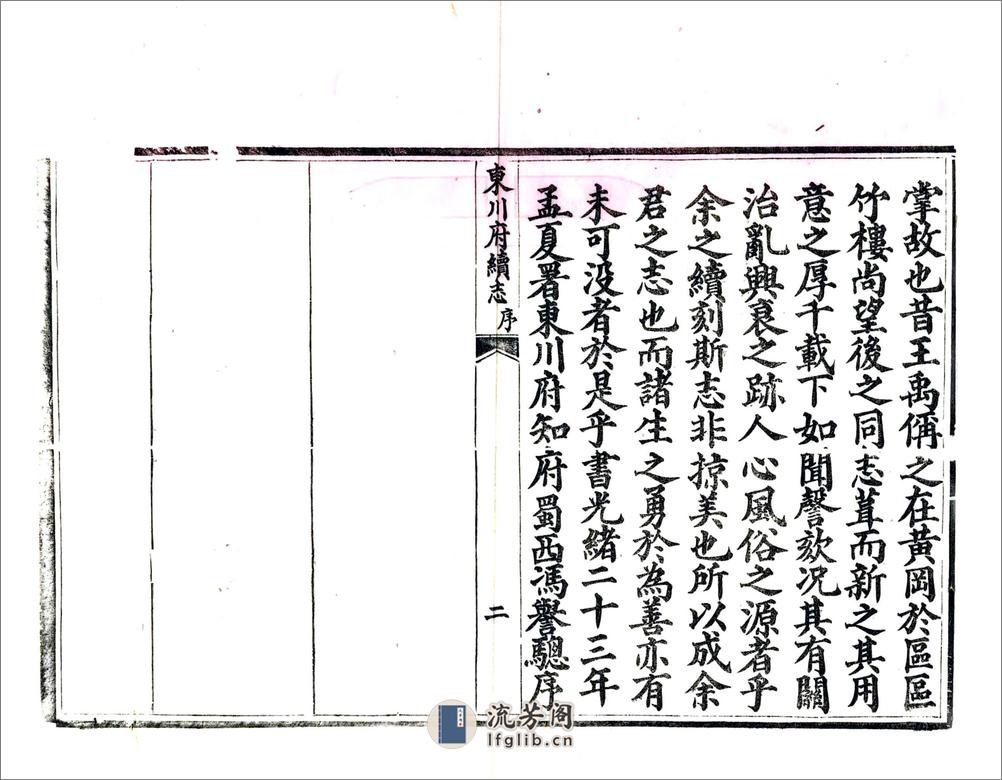 掌故也昔王禹偁之在黃岡於區區
竹樓尚望後之同志葺而新之其用
意之厚千載下如聞謦欬况其有關
治亂興衰之跡人心風俗之源者乎
余之續刻斯志非掠美也所以成余
君之志也而諸生之勇於為善亦有
未可没者於是乎書光緒二十三年
孟夏署東川府知府蜀西馮譽驄序
東川府續志 序
二
流芳阁
lfglib.cn